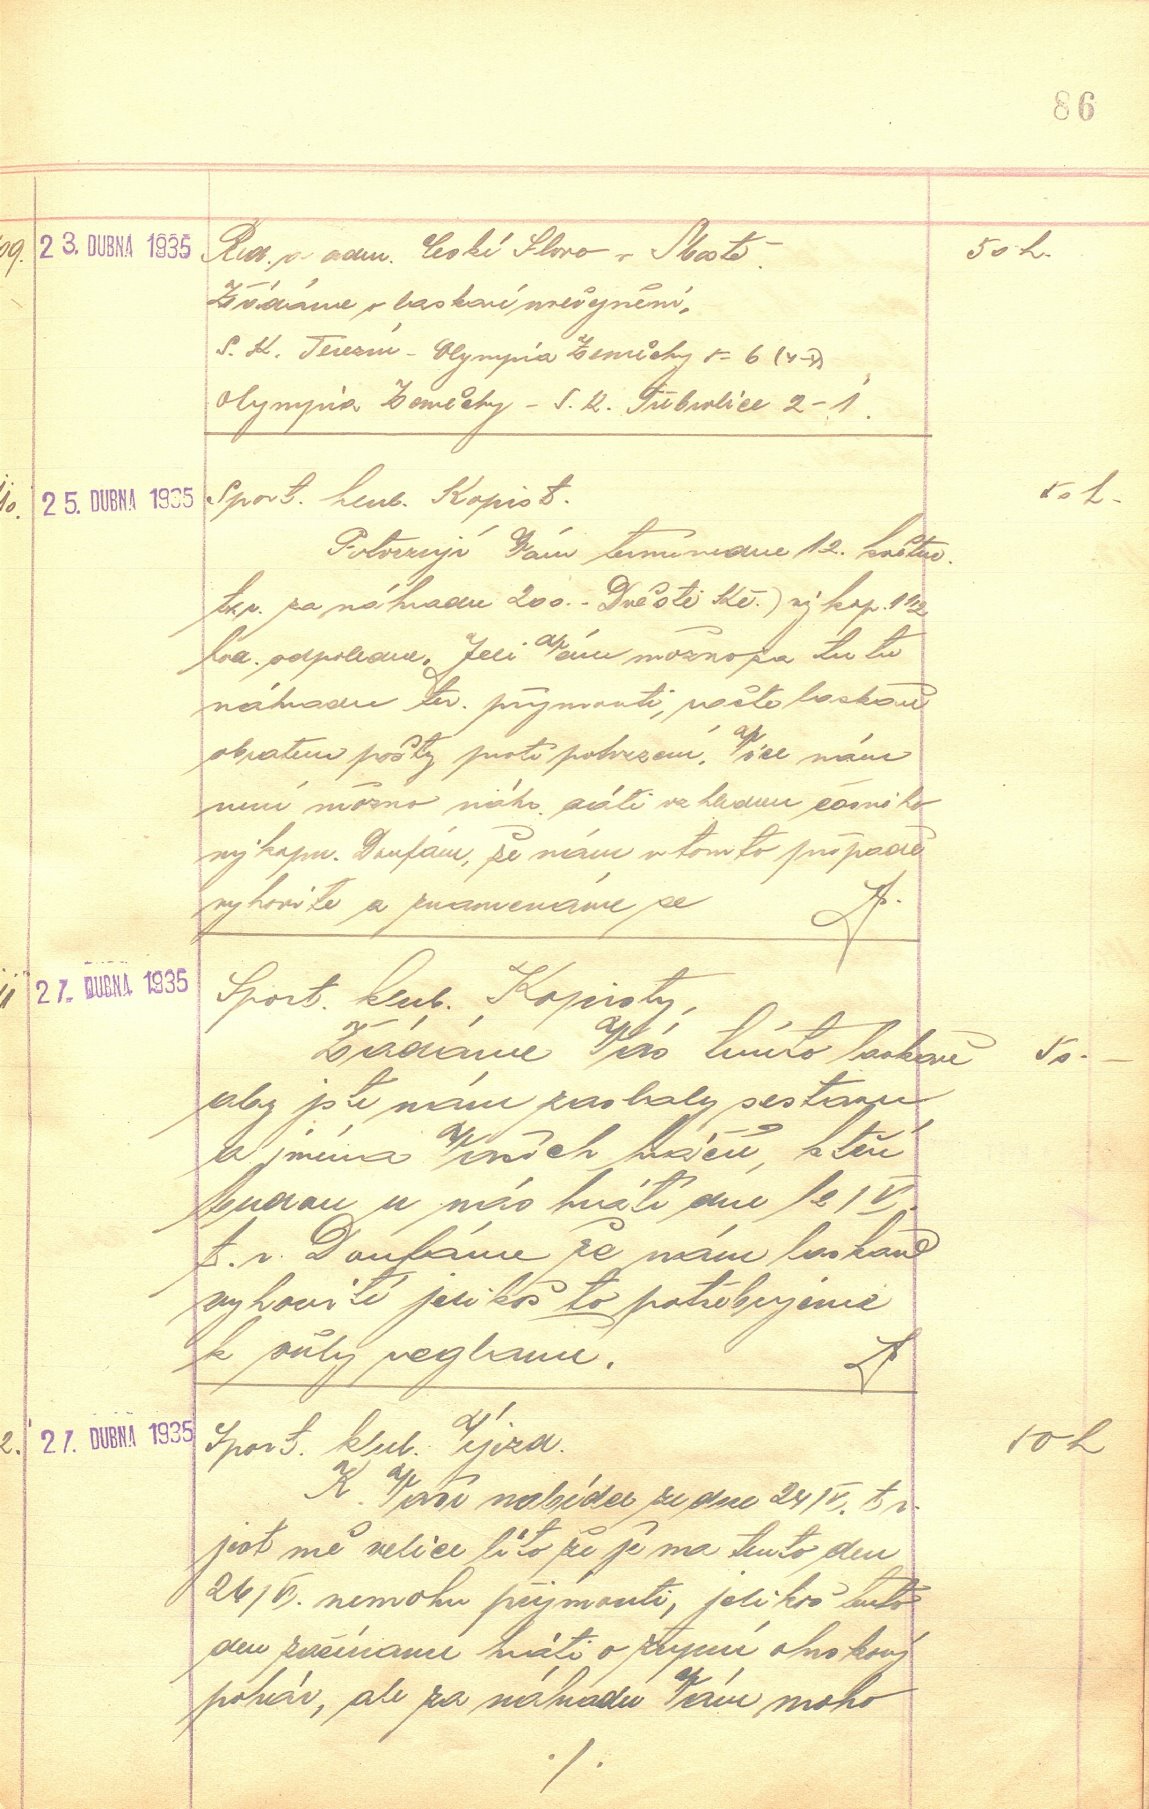 86
09. 23. DUBNA 1935 Red. a adm. České Slovo v Mostě. 50 h.
Žádáme o laskavé uveřejnění.
S. K. Terezín - Olympia Zeměchy 5 = 6
Olympia Zeměchy - S. K. Třebívlice 2 - 1.
10. 25. DUBNA 1935 Sport. klub. Kopist. 50 h.
Potvrzuji Vám termín dne 12. května
t.r. za náhradu 200.- Dvěstě Kč.) výkop. 1 1/2
hod. odpoledne. Jeli Vám možno za tuto
náhradu ter. přijmouti, račte laskavě
obratem pošty proti potvrzení. Více nám
není možno náhr. dáti vzhledem časného
výkopu. Doufám, že nám v tomto případě
vyhovíte a znamenáme se
11 27. DUBNA 1935 Sport. klub. Kopisty,
Žádáme Vás tímto laskavě 50.-
aby jste nám zaslaly sestavu
a jména Vašich hráčů, kteří
budou u nás hráti dne 12/V.
t. r. Doufáme že nám laskavě
vyhovíte jelikoš to potřebujeme
k účely reglamu.
2. 27. DUBNA 1935 Sport. klub. Újezd. 50 h
K. Vaší nabídce ze dne 24/IV. t r.
jest mě velice líto že já na tento den
26/V. nemohu přijmouti, jelikoš tento
den začínáme hráti o župní okrskový
pohár, ale za náhradu Vám moho
./.